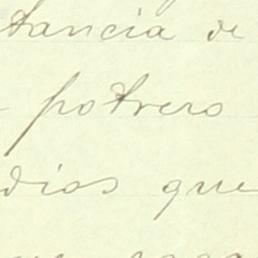 tancia de
potrero
dios que